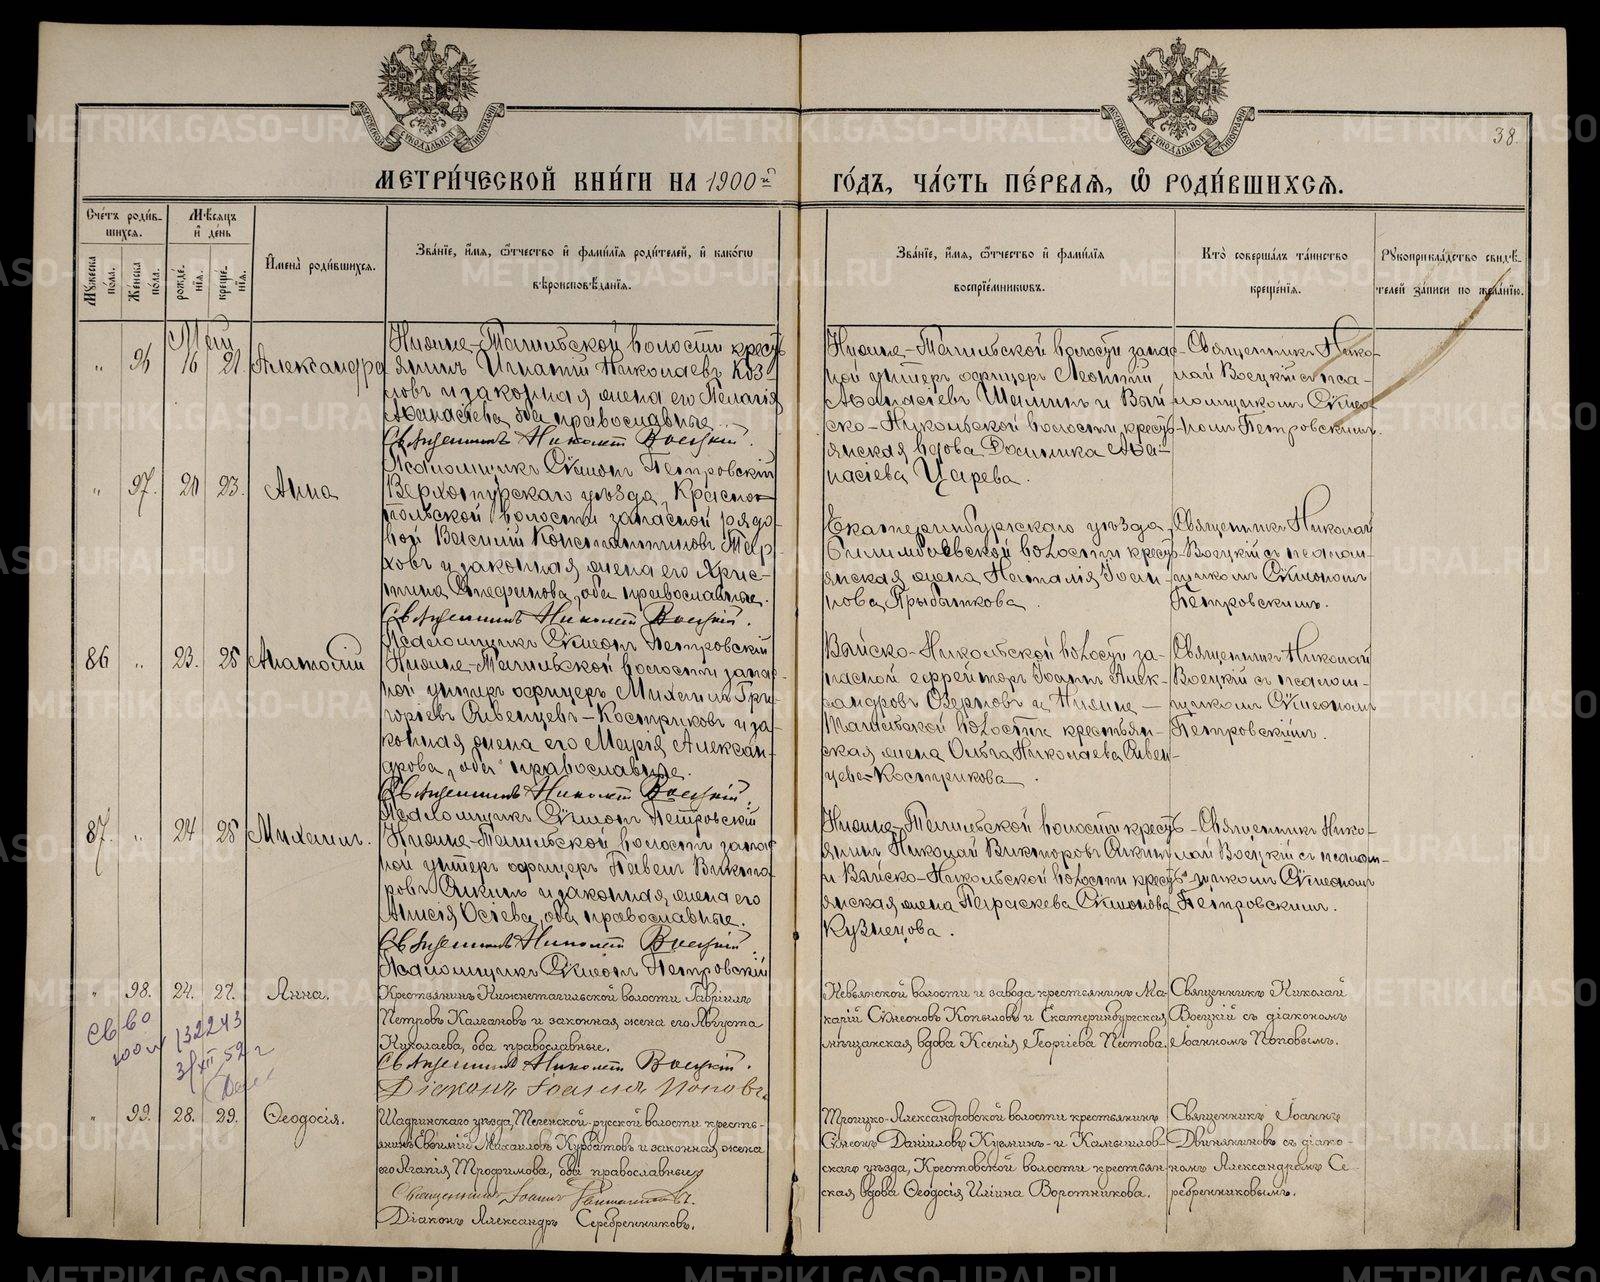 38.
МЕТРИ́ЧЕСКОЙ КНИ́ГИ НА 1900й
ГО́ДЪ, ЧА́СТЬ ПЕ́РВАѦ, Ѽ РОДИ́ВШИХСѦ.
Сче́тъ роди́в-
шихся.
Мѣ́сяцъ
и де́нь
Мꙋ́жеска по́ла.
Же́нска по́ла.
рожде́нїя.
креще́нїя.
Имена̀ роди́вшихся.
Зва́нїе, и́мя, ѻ́тчество и фами́лїя роди́телей, и како́гѡ
вѣроисповѣ́данїя.
Зва́нїе, и́мя, ѻ́тчество и фами́лїя
воспрїе́мникѡвъ.
Кто̀ соверша́лъ та́инство
креще́нїя.
Рꙋкоприкла́дство свидѣ́-
телей за́писи по жела́нїю.
Маій
" 96 16 21 Александра
Нижне-Тагильской волости кресть
янинъ Игнатій Николаевъ Коз-
ловъ и законная жена его Пелагія
Аѳанасіева, оба православные.
Священникъ Николай Воецкій.
Псаломщикъ Сѵмеонъ Петровскій
Нижне-Тагильской волости запас-
ной унтеръ офицеръ Леонтій
Аѳанасіевъ Шаминъ и Вый-
ско-Никольской волости кресть-
янская вдова Домника Аѳа-
насіева Царева.
Священникъ Нико-
лай Воецкій съ пса-
ломщикомъ Сѵмео-
номъ Петровскимъ.
" 97. 20 23. Анна
Верхотурскаго уѣзда, Краснопольской волости запасной рядо-
вой Василій Константиновъ Тер-
ховъ и законная жена его Хрис-
тина Стефанова, оба православные.
Священникъ Николай Воецкій.
Псаломщикъ Сѵмеонъ Петровскій
Екатеринбургскаго уѣзда,
Билимбаевской волости кресть-
янская жена Наталія Іоан-
нова Прыбыткова.
Священникъ Николай
Воецкій съ псалом-
щикомъ Сѵмеономъ
Петровскимъ.
86 " 23. 25 Анатолій
Нижне-Тагильской волости запас-
ной унтеръ офицеръ Михаилъ Гри-
горьевъ Сивенцевъ-Костриковъ и за-
конная жена его Марія Алексан-
дрова, оба православные.
Священникъ Николай Воецкій.
Псаломщикъ Сѵмеонъ Петровскій
Выйско-Никольской волости за-
пасной ефрейторъ Іоаннъ Алек-
сандровъ Озерновъ и Нижне-
Тагильской волости крестьян-
ская жена Ольга Николаева Сивен-
цева-Кострикова.
Священникъ Николай
Воецкій съ псалом-
щикомъ Сѵмеономъ
Петровскимъ.
87. " 24. 25 Михаилъ.
Нижне-Тагильской волости запас-
ной унтеръ офицеръ Павелъ Викто-
ровъ Аикинъ и законная жена его
Анисія Осіева, оба православные.
Священникъ Николай Воецкій.
Псаломщикъ Сѵмеонъ Петровскій
Нижне-Тагильской волости кресть-
янинъ Николай Викторовъ Аикинъ
и Выйско-Никольской волости кресть-
янская жена Параскева Сѵмеонова
Кузнецова.
Священникъ Нико-
лай Воецкій съ псалом-
щикомъ Сѵмеономъ
Петровскимъ.
" 98. 24. 27. Анна.
Крестьянинъ Нижнетагильской волости Гавріилъ
Петровъ Калгановъ и законная жена его Августа
Николаева, оба православные.
Священникъ Николай Воецкій.
Діаконъ Іоаннъ Поповъ.
Невьянской волости и завода крестьянинъ Ма-
карій Сѵмеоновъ Копыловъ и Екатеринбургская
мѣщанская вдова Ксенія Георгіева Пестова.
Священникъ Николай
Воецкій съ діакономъ
Іоанномъ Поповымъ.
Св во
132243
3/XII 52 г
" 99. 28. 29. Ѳеодосія.
Шадринскаго уѣзда, Теченской-русской волости кресть-
янинъ Евѳимій Михаиловъ Курбатовъ и законная жена
его Агапія Трофимова, оба православные.
Священникъ Іоаннъ
Діаконъ Александръ Серебренниковъ.
Троицко-Александровской волости крестьянинъ
Сѵмеонъ Даниловъ Кузминъ и Камышлов-
скаго уѣзда, Крестовской волости крестьян-
ская вдова Ѳеодосія Иліина Воротникова.
Священникъ Іоаннъ
Двиняниновъ съ діако-
номъ Александромъ Се-
ребренниковымъ.
METRIKI.GASO-URAL.RU